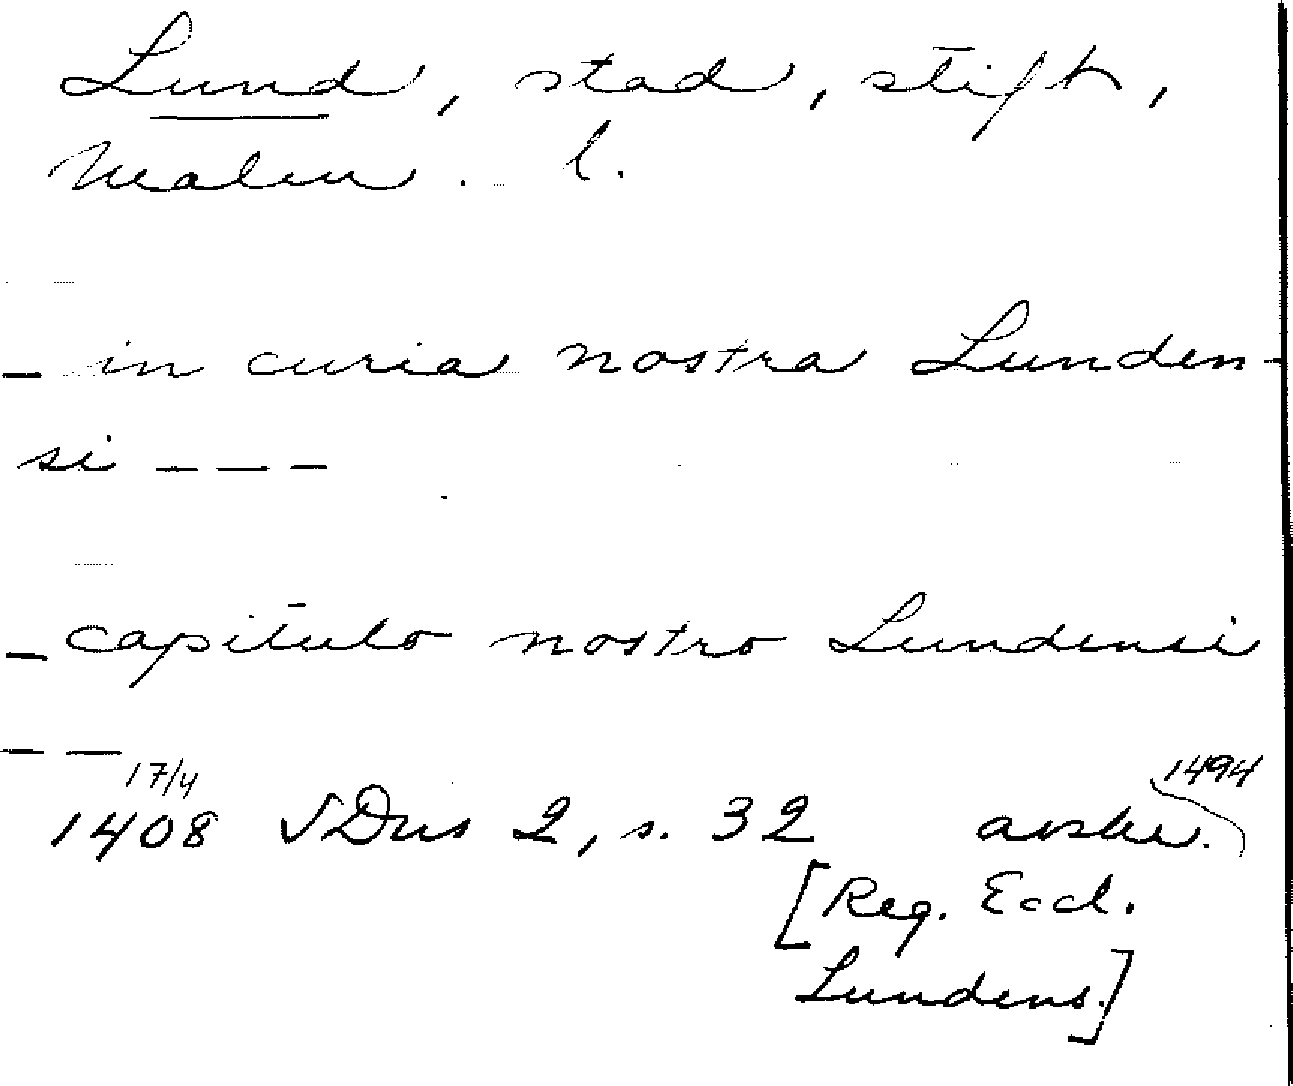 Lund, stad, stift,
Malm. l.
- in curia nostra Lunden-
si - - -
- capitulo nostro Lundensi
- -
17/4 1494
1408 SDns 2, s. 32 avskr.
[Reg. Eccl.
Lundens.]